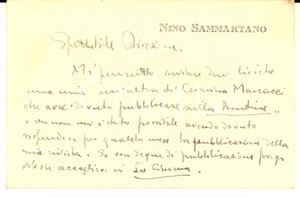 NINO SAMMARTANO
Spettabile Direzione,
Mi permetto inviare due liriche
una mia un'altra di Cesarina Marcacci
che avrei dovuto pubblicare sulla
e non mi è stato possibile avendo dovuto
sospendere per qualche mese la pubblicazione della
mia rivista. Se son degne di pubblicazione prego
volerle accogliere in